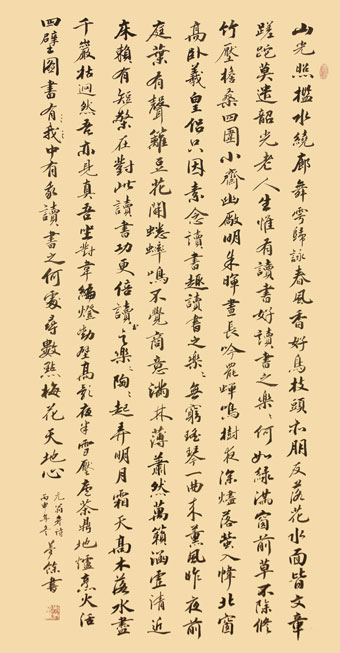 山光照檻水繞廊舞雩歸詠春風香好鳥枝頭亦朋友落花水面皆文章
蹉跎莫遣韶光老人生惟有讀書好讀書之樂〻何如綠滿窗前草不除修
竹壓檐桑四圍小齋幽敞明朱暉晝長吟罷蟬鳴樹夜深燼落螢入幃北窗
高臥羲皇侶只因素念讀書趣讀書之樂〻無窮瑤琴一曲來薰風昨夜前
庭葉有聲籬豆花開蟋蟀鳴不覺商意滿林薄蕭然萬籟涵虛清近
床賴有短檠在對此讀書功更倍讀書之樂〻陶〻起弄明月霜天高木落水盡
千巖枯迥然吾亦見真吾坐對韋編燈動壁高歌夜半雪壓廬茶鼎地爐烹火活
四壁圖書有我中有讀書之何處尋數點梅花天地心
元翁森詩
丙申年冬 書